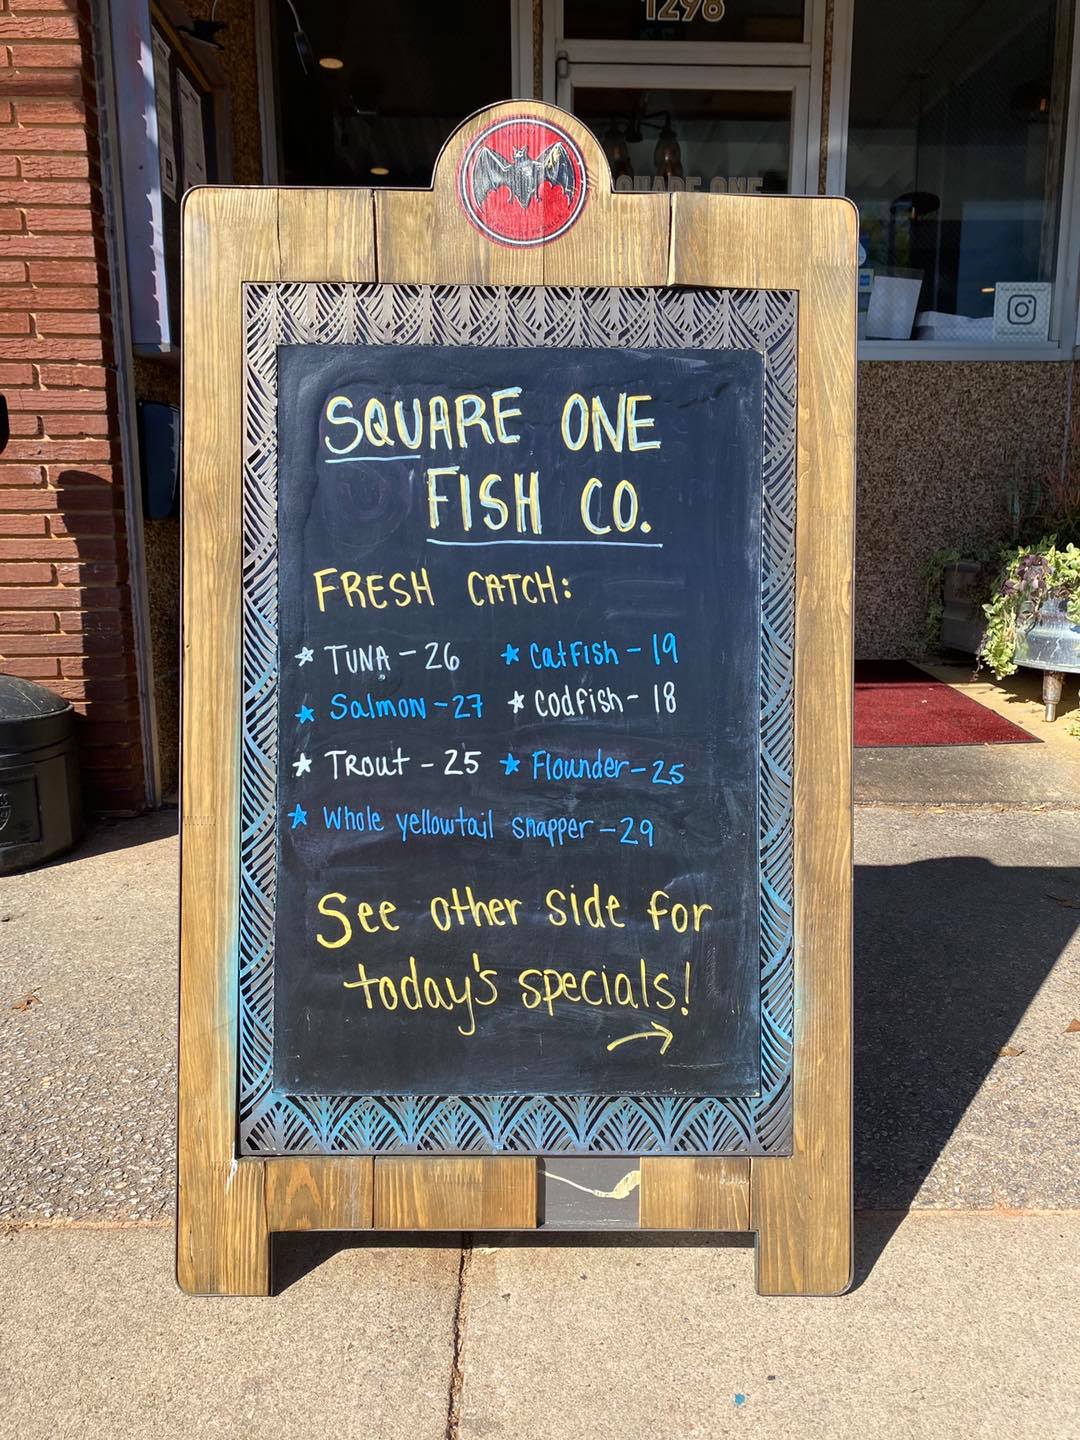 1298
SQUARE ONE
SQUARE ONE
FISH CO.
FRESH CATCH:
TUNA - 26
CatFish - 19
Salmon - 27
Codfish - 18
Trout - 25
Flounder - 25
Whole yellowtail snapper - 29
See other side for
today's specials!